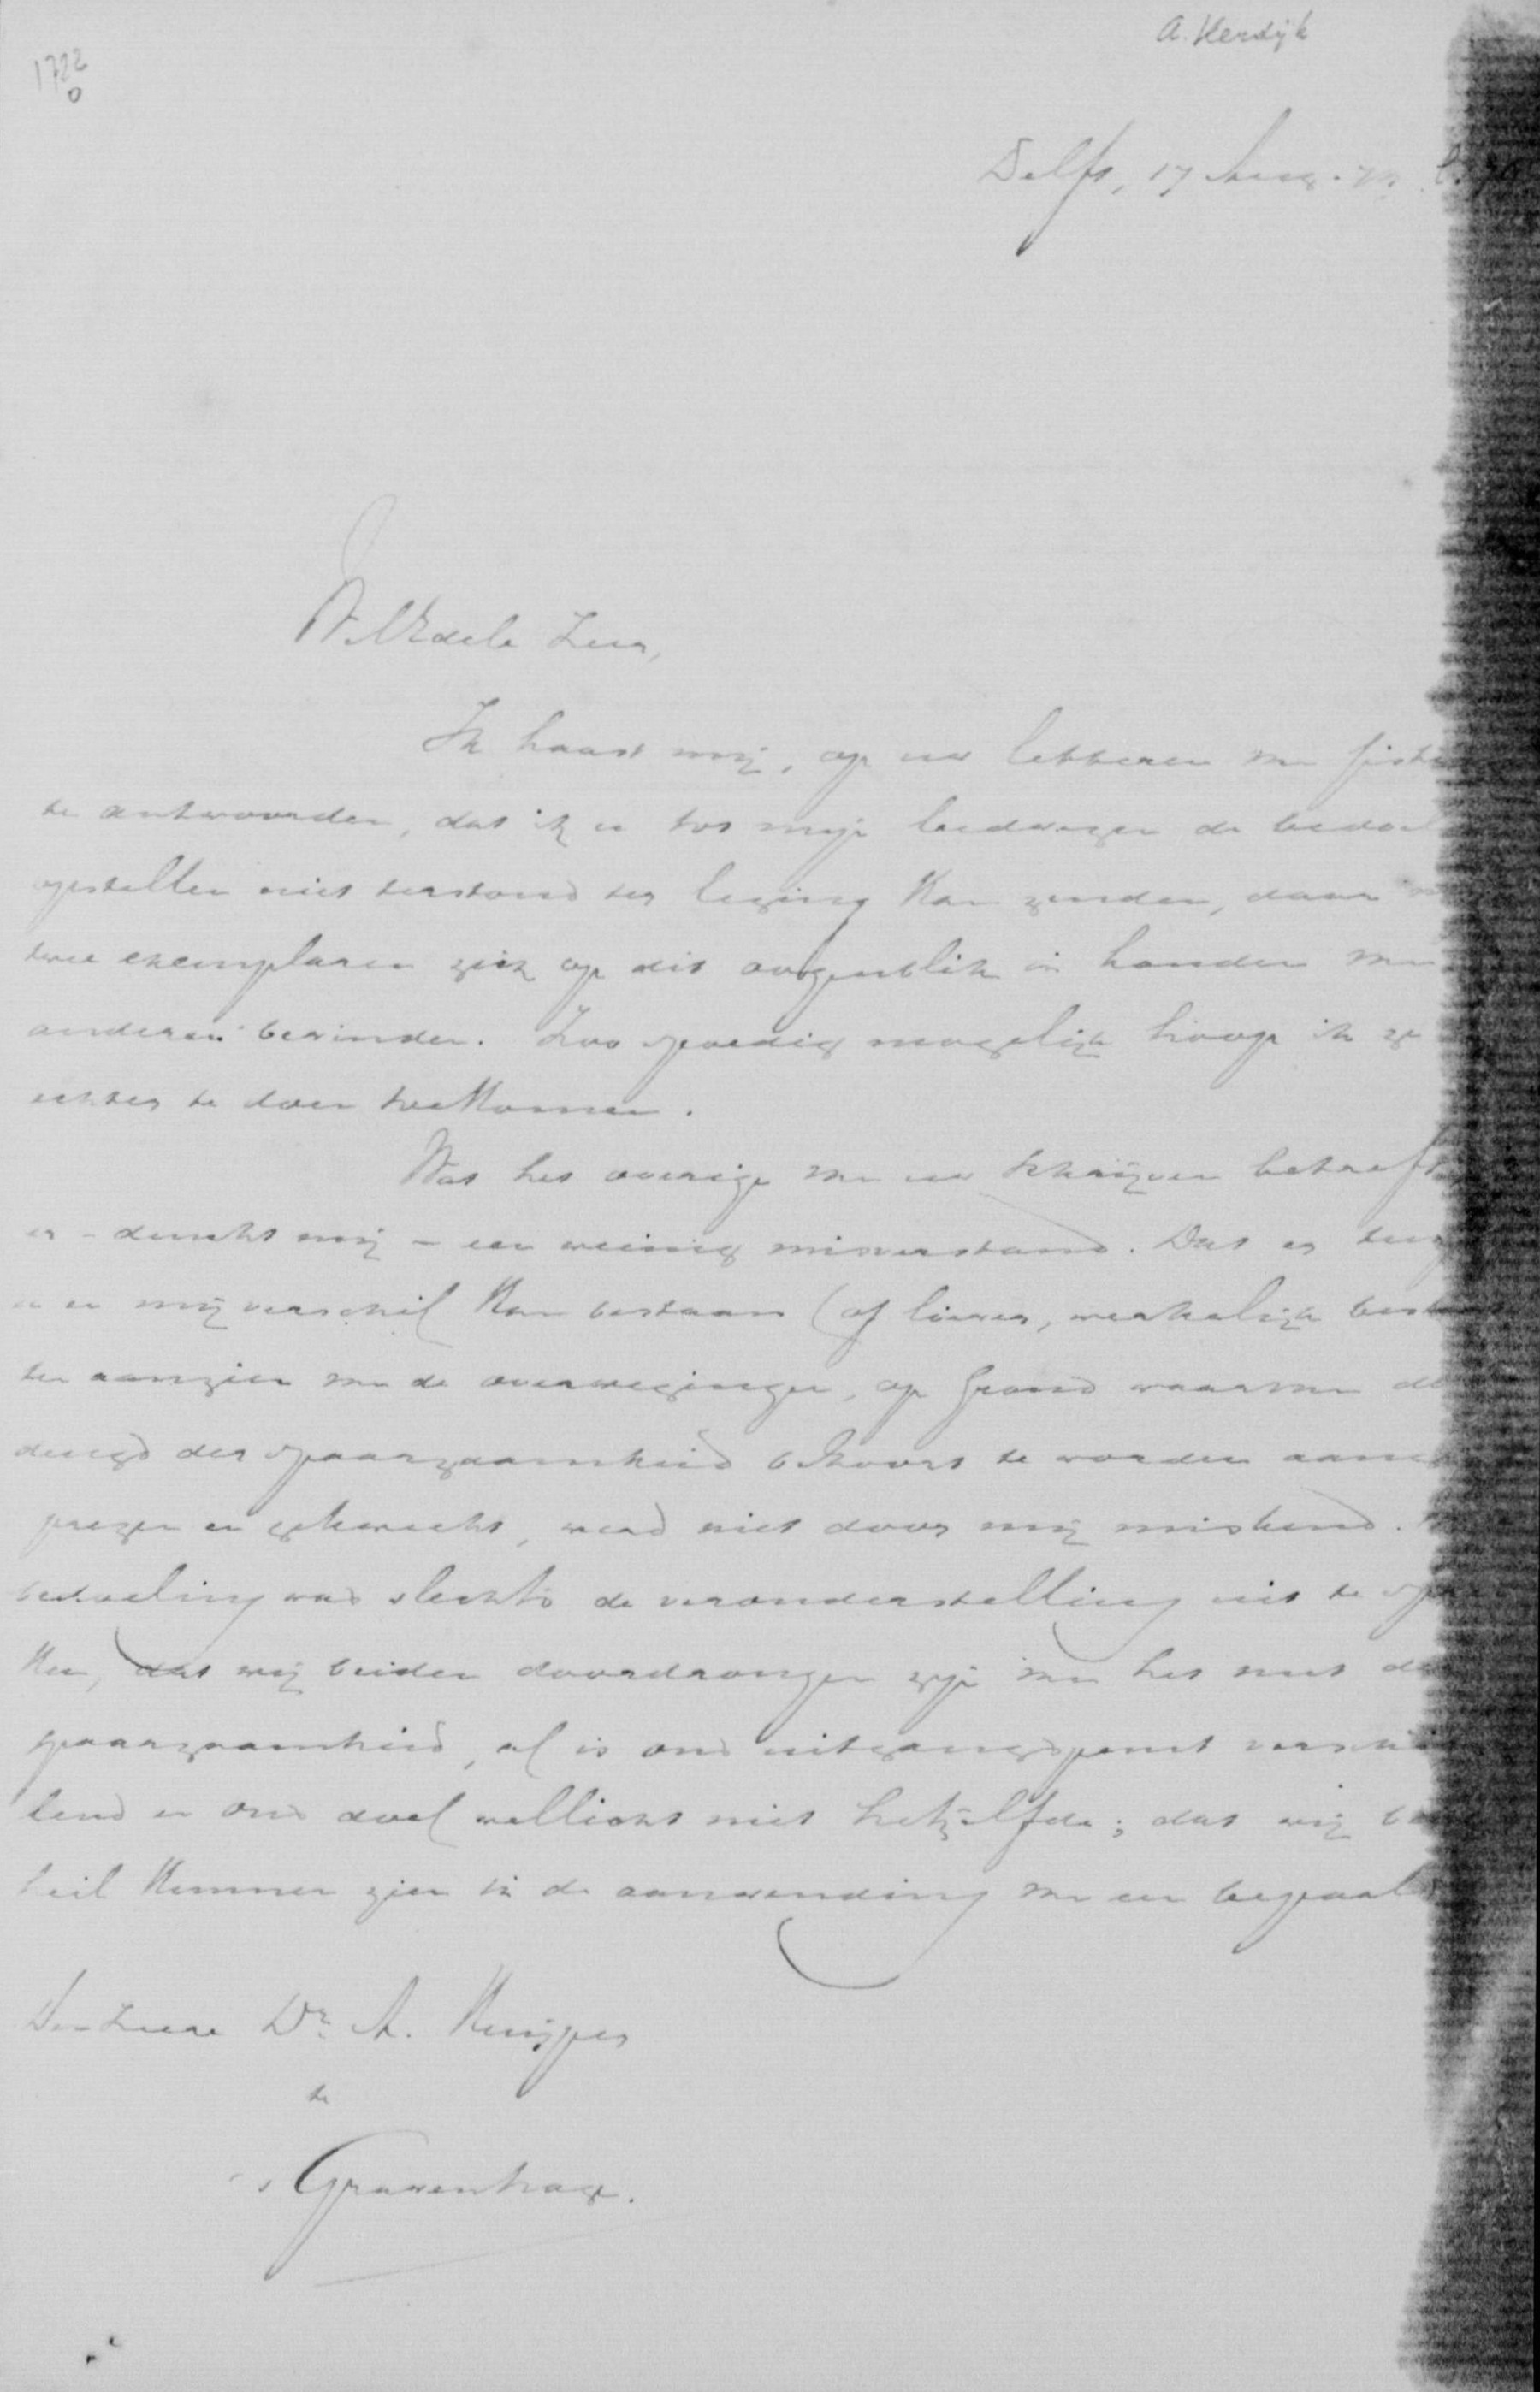 A. Kerdijk
1722
0
Delft, 17 Aug.
WelEdele Heer,
Ik haast mij, op uw letteren van giste
te antwoorden, dat ik u tot mijn leedwezen de bedoel
opstellen niet terstond ter lezing kan zenden, daar
twee exemplaren zich op dit oogenblik in handen van
anderen bevinden. Zoo spoedig mogelijk hoop ik ze
echter te doen toekomen.
Wat het overige van uw schrijven betreft
er - dunkt mij - een weinig misverstand. Dat er tus
u en mij verschil kan bestaan (of liever, werkelijk best
ten aanzien van de overwegingen, op grond waarvan de
deugd der spaarzaamheid behoort te worden aang
prezen en gekweekt, werd niet door mij miskend.
bedoeling was slechts de veronderstelling uit te sp
ken, dat wij beiden doordrongen zijn van het nut de
spaarzaamheid, al is ons uitgangspunt verschil
lend en ons doel wellicht niet hetzelfde; dat wij b
heil kunnen zien in de aanwending van een bepaal
Den Heere Dr. A. Kuijper
te
's Gravenhage.